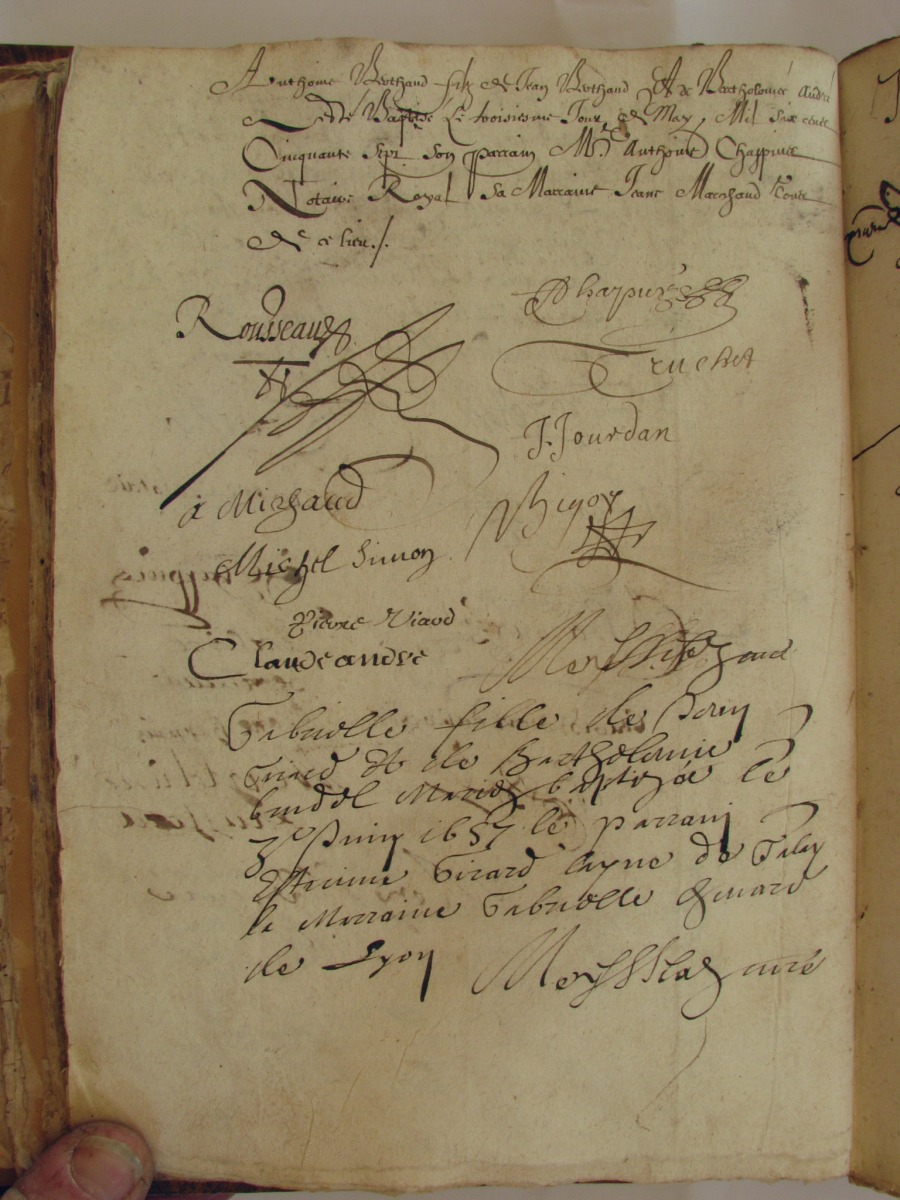 Anthoine Berthaud filz de Jean Berthaud Et de Bartholomie André
Este Baptizé Le troisiesme Jour de May Mil Six cent
Cinquante Sept Son parrain Mre Anthoine Chappuis
Notaire Royal Sa Marraine Jeane Marchaud Tous
de ce lieu./.
Rousseau
Chapuis
Truchet
J. Jourdan
A Michaud
Michel Simon
Pierre Viaud
Claude andre
curé
Gabrielle fille de
Girard Et de Bartholomie
Mariez baptizée le
3e Juin 1657 le parrain
Estienne Girard layne de
la Marraine Gabrielle
de Lyon
curé